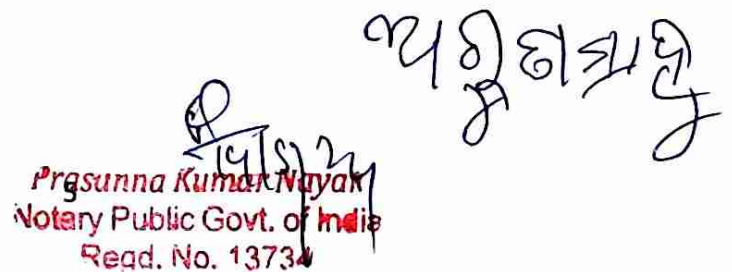 ଅରୁଣ ସାହୁ
Prasunna Kumar Nayak
Notary Public Govt. of India
Regd. No. 13734